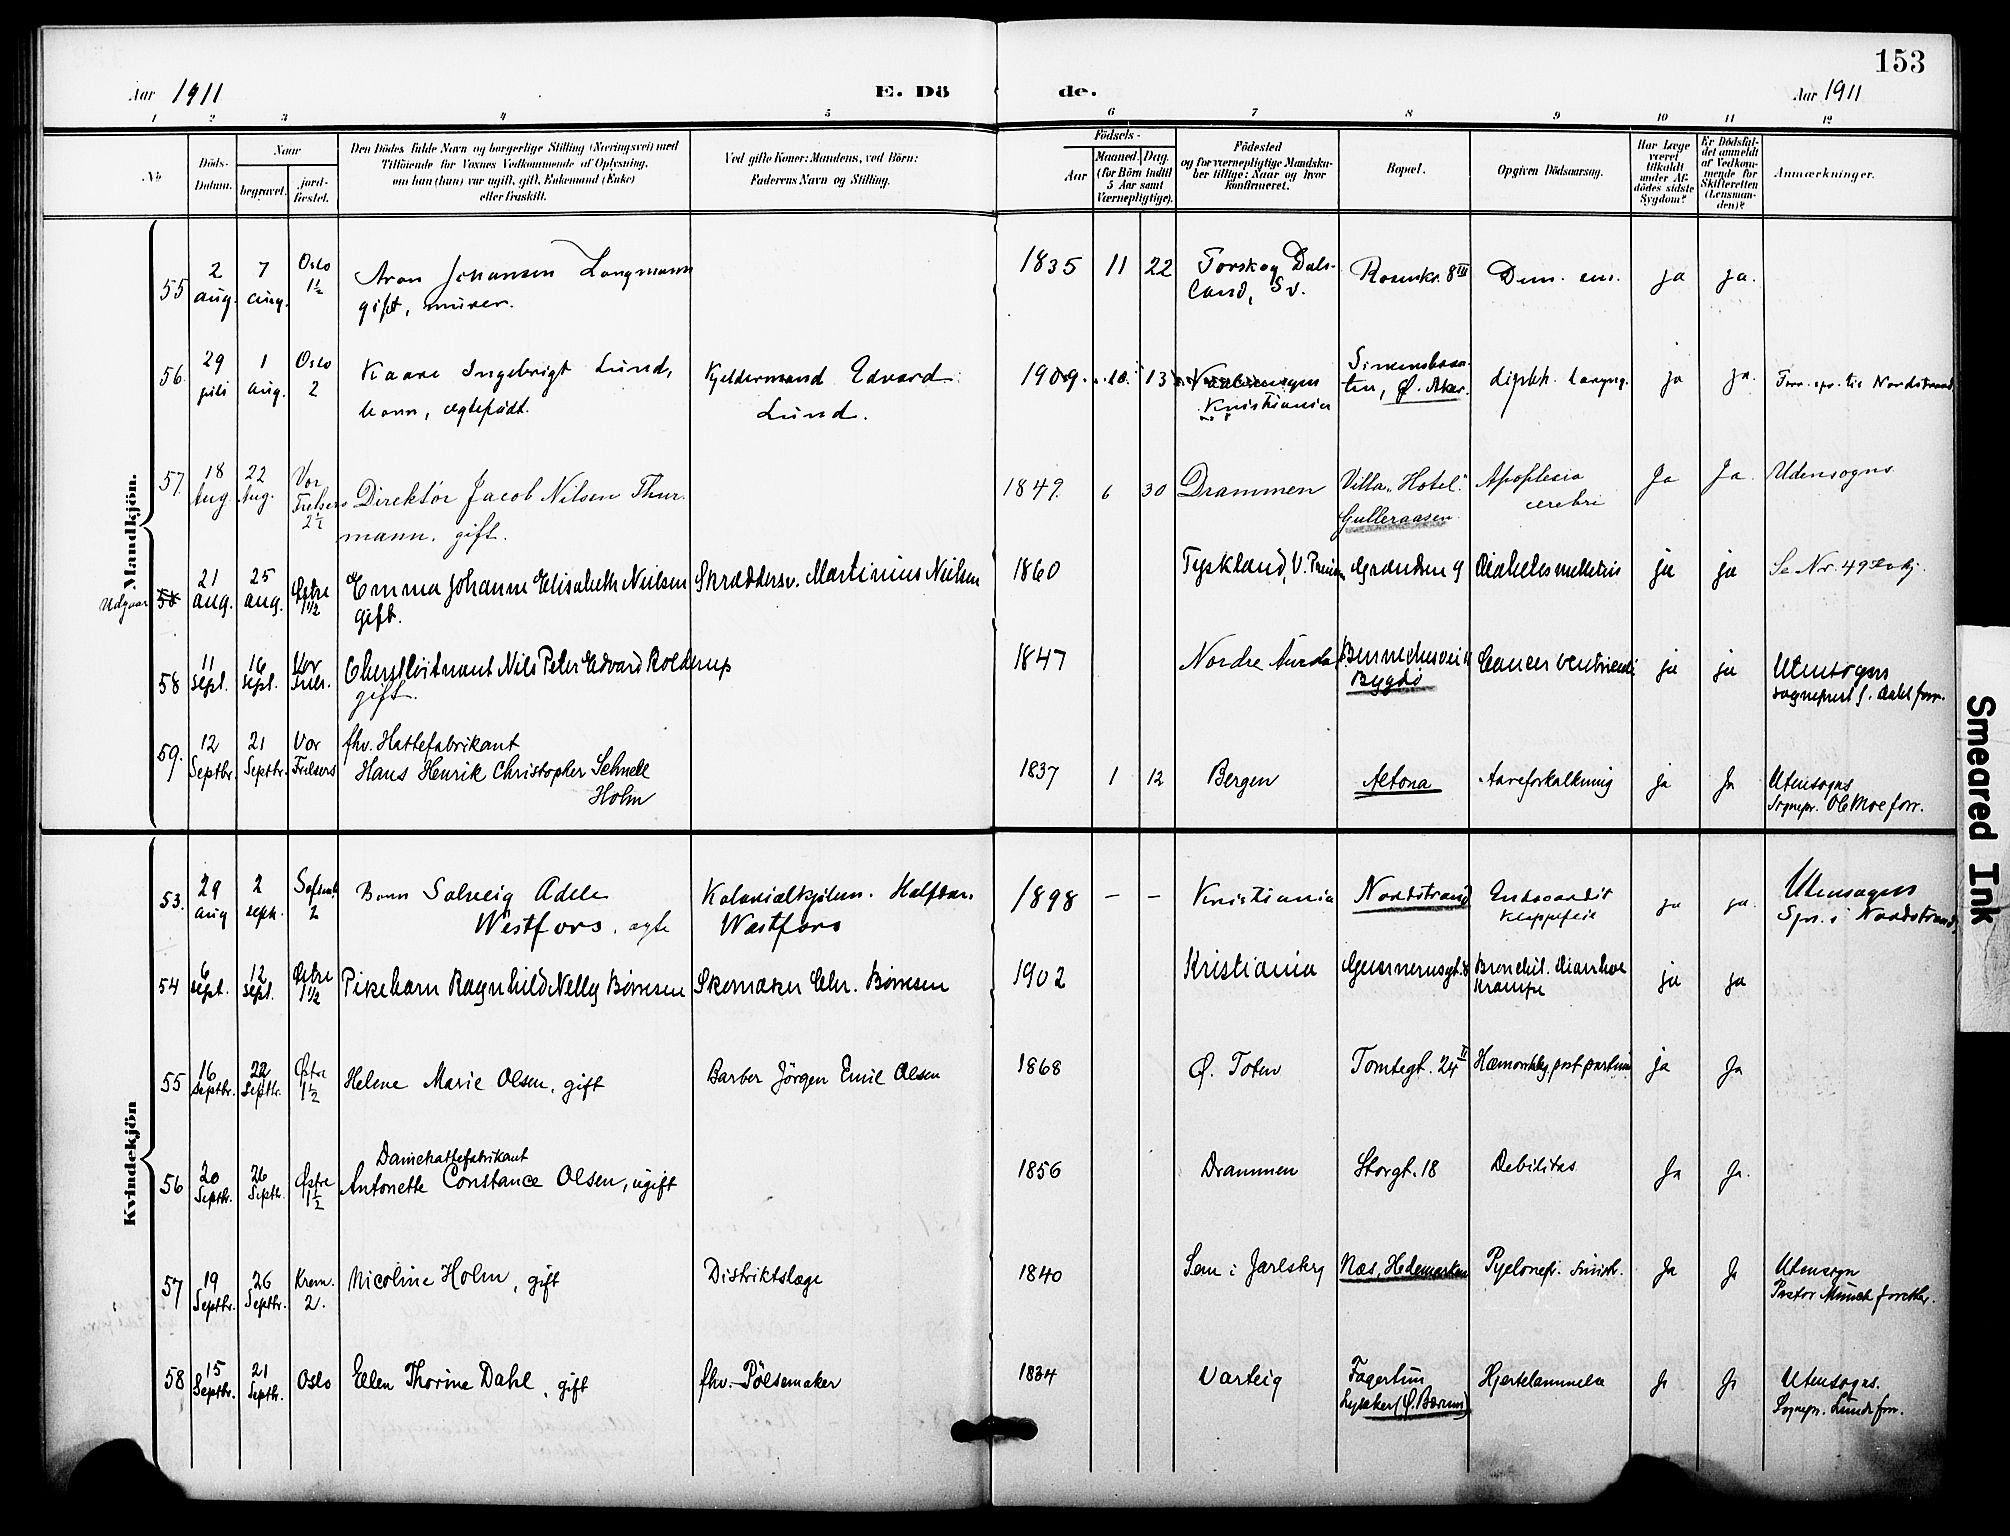 153
Aar 1911 E. Dö de. Aar 1911
1 2 3 4 5 6 7 8 9 10 11 12
No
Döds-Datum.
Naar
begravet.
jord-fæstet.
Den Dödes fulde Navn og borgerlige Stilling (Næringsvei) med
Tilföiende for Voxnes Vedkommende af Oplysning,
om han (hun) var ugift, gift, Enkemand (Enke)
eller fraskilt.
Ved gifte Koner: Mandens, ved Börn:
Faderens Navn og Stilling.
Födsels-
Aar
Maaned. Dag.
(for Börn indtil
5 Aar samt
Værnepligtige).
Födested
og for værnepligtige Mandska-
ber tillige: Naar og hvor
konfirmeret.
Bopæl.
Opgiven Dödsaarsag.
Har Læge
været
tilkaldt
under Af-
dödes sidste
Sygdom?
Er Dödsfal-
det anmeldt
af Vedkom-
mende for
Skifteretten
(Lensman-
den)?
Anmærkninger.
Mandkjön.
55 2 aug. 7 aug. Oslo 1½ Aron Johansen Langmann
gift, murer.
1835 11 22 Torskog Dals-
land, Sv. Rosenkr. 8 III Dem. sen. ja ja.
56. 29 juli 1 aug. Oslo 2 Kaare Ingebrigt Lund,
barn, ægtefødt. Kjeldermand Edvard
Lund.
1909. 10. 13
Kristiania Simensbraa-
ten, Ø. Aker. diphth. laryng. ja ja. Forr. spr. til Nordstrand
57. 18 Aug. 22 Aug. Vor Frelsers 2½ Direktör Jacob Nilsen Thur-
mann, gift.
1849. 6 30 Drammen Villa "Hotel"
Gulleraasen Apoplexia
cerebri Ja Ja. Udensogns
Udgaar 58 21 aug. 25 aug. Østre 1½ Emma Johanne Elisabeth Nielsen
gift. Skræddersv. Martinius Nielsen
1860 Tyskland, V. Preussen Grænsen 9 Diabetes mellitus ja ja Se Nr. 49 Kvkj.
58 11 sept. 16 sept. Vor Frelr. Oberstløitnant Nils Peter Edvard Rolderup
gift.
1847 Nordre Aurdal
Bygdö Cancer ventriculi ja ja Utensogns
sognepræst J. Dahl forr.
59. 12 Septbr. 21 Septbr. Vor Frelsers fhv. Hattefabrikant
Hans Henrik Christopher Schnell
Holm
1837 1 12 Bergen Altona Aareforkalkning ja Ja Utensogns
Sognepr. Ole Moe forr.
Kvindekjön
53. 29 aug 2 sept. 2 Barn Solveig Adele
Westfors, ægte Kolonialkjøbm. Halfdan
Westfors
1898 – – Kristiania Nordstrand Endocardit
Klappefeil ja ja. Utensogns
Spr. i Nordstrand.
54 6 sept. 12 sept. Østre 1½ Pikebarn Ragnhild Nelly Børresen Skomaker Chr. Børresen
1902 Kristiania Gunnerusgt. 8 Bronchit. diarrhoe
Krampe ja ja
55 16 Septbr. 22 Septbr. Østre 1½ Helene Marie Olsen, gift Barber Jörgen Emil Olsen
1868 Ø. Toten Tomtegt. 24 II Hæmorrhag. post partum ja Ja
56 20 Septbr. 26 Septbr. Østre 1½ Damehattefabrikant
Antonette Constance Olsen, ugift
1856 Drammen Storgt. 18 Debilitas Ja Ja.
57 19 Septbr. 26 Septbr. Krem. 2. Nicoline Holm, gift Distriktslæge
1840 Sem i Jarlsberg Næs, Hedemarken Pyelonefr. sinistr. Ja Ja Utensogn
Pastor Münch forrettr.
58 15 Septbr. 21 Septbr. Oslo Ellen Thorine Dahl, gift fhv. Pölsemaker
1834 Varteig Fagertun
Lysaker (Ø. Bærum) Hjertelammelse Ja Ja Utensogns.
Sognepr. Lunde forr.
Smeared Ink